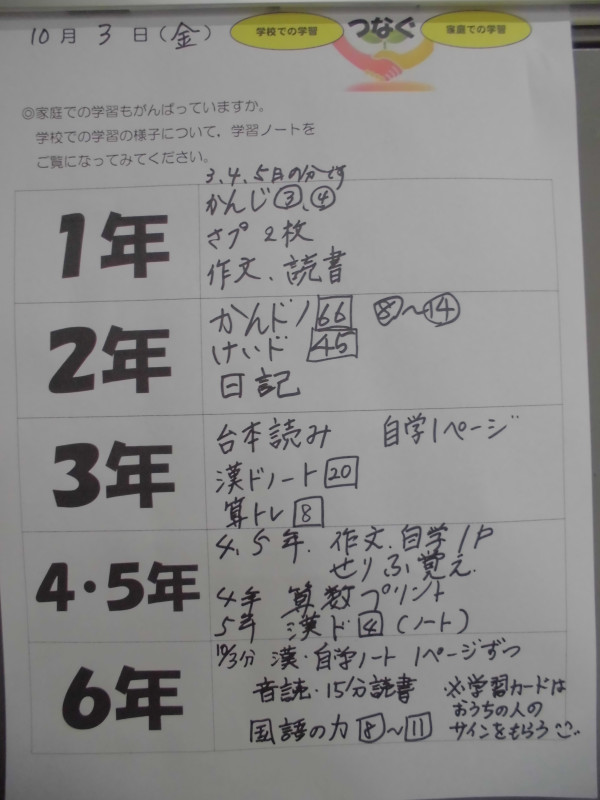 10月 3 日(金)
学校での学習 つなぐ 家庭での学習
◎家庭での学習もがんばっていますか。
学校での学習の様子について、学習ノートを
ご覧になってみてください。
3、4、5日の分です
1年
かんじ③、④
さプ 2枚
作文、読書
2年
かんドノ 66 ⑧～⑭
けいド 45
日記
3年
台本読み 自学1ページ
漢ドノート 20
算トレ 8
4・5年
4、5年、作文、自学1P
せりふ覚え
4年 算数プリント
5年 漢ド 4 (ノート)
6年
10/3分 漢・自学ノート 1ページずつ
音読・15分読書 ※学習カードは
おうちの人の
国語の力 8～11 サインをもらう